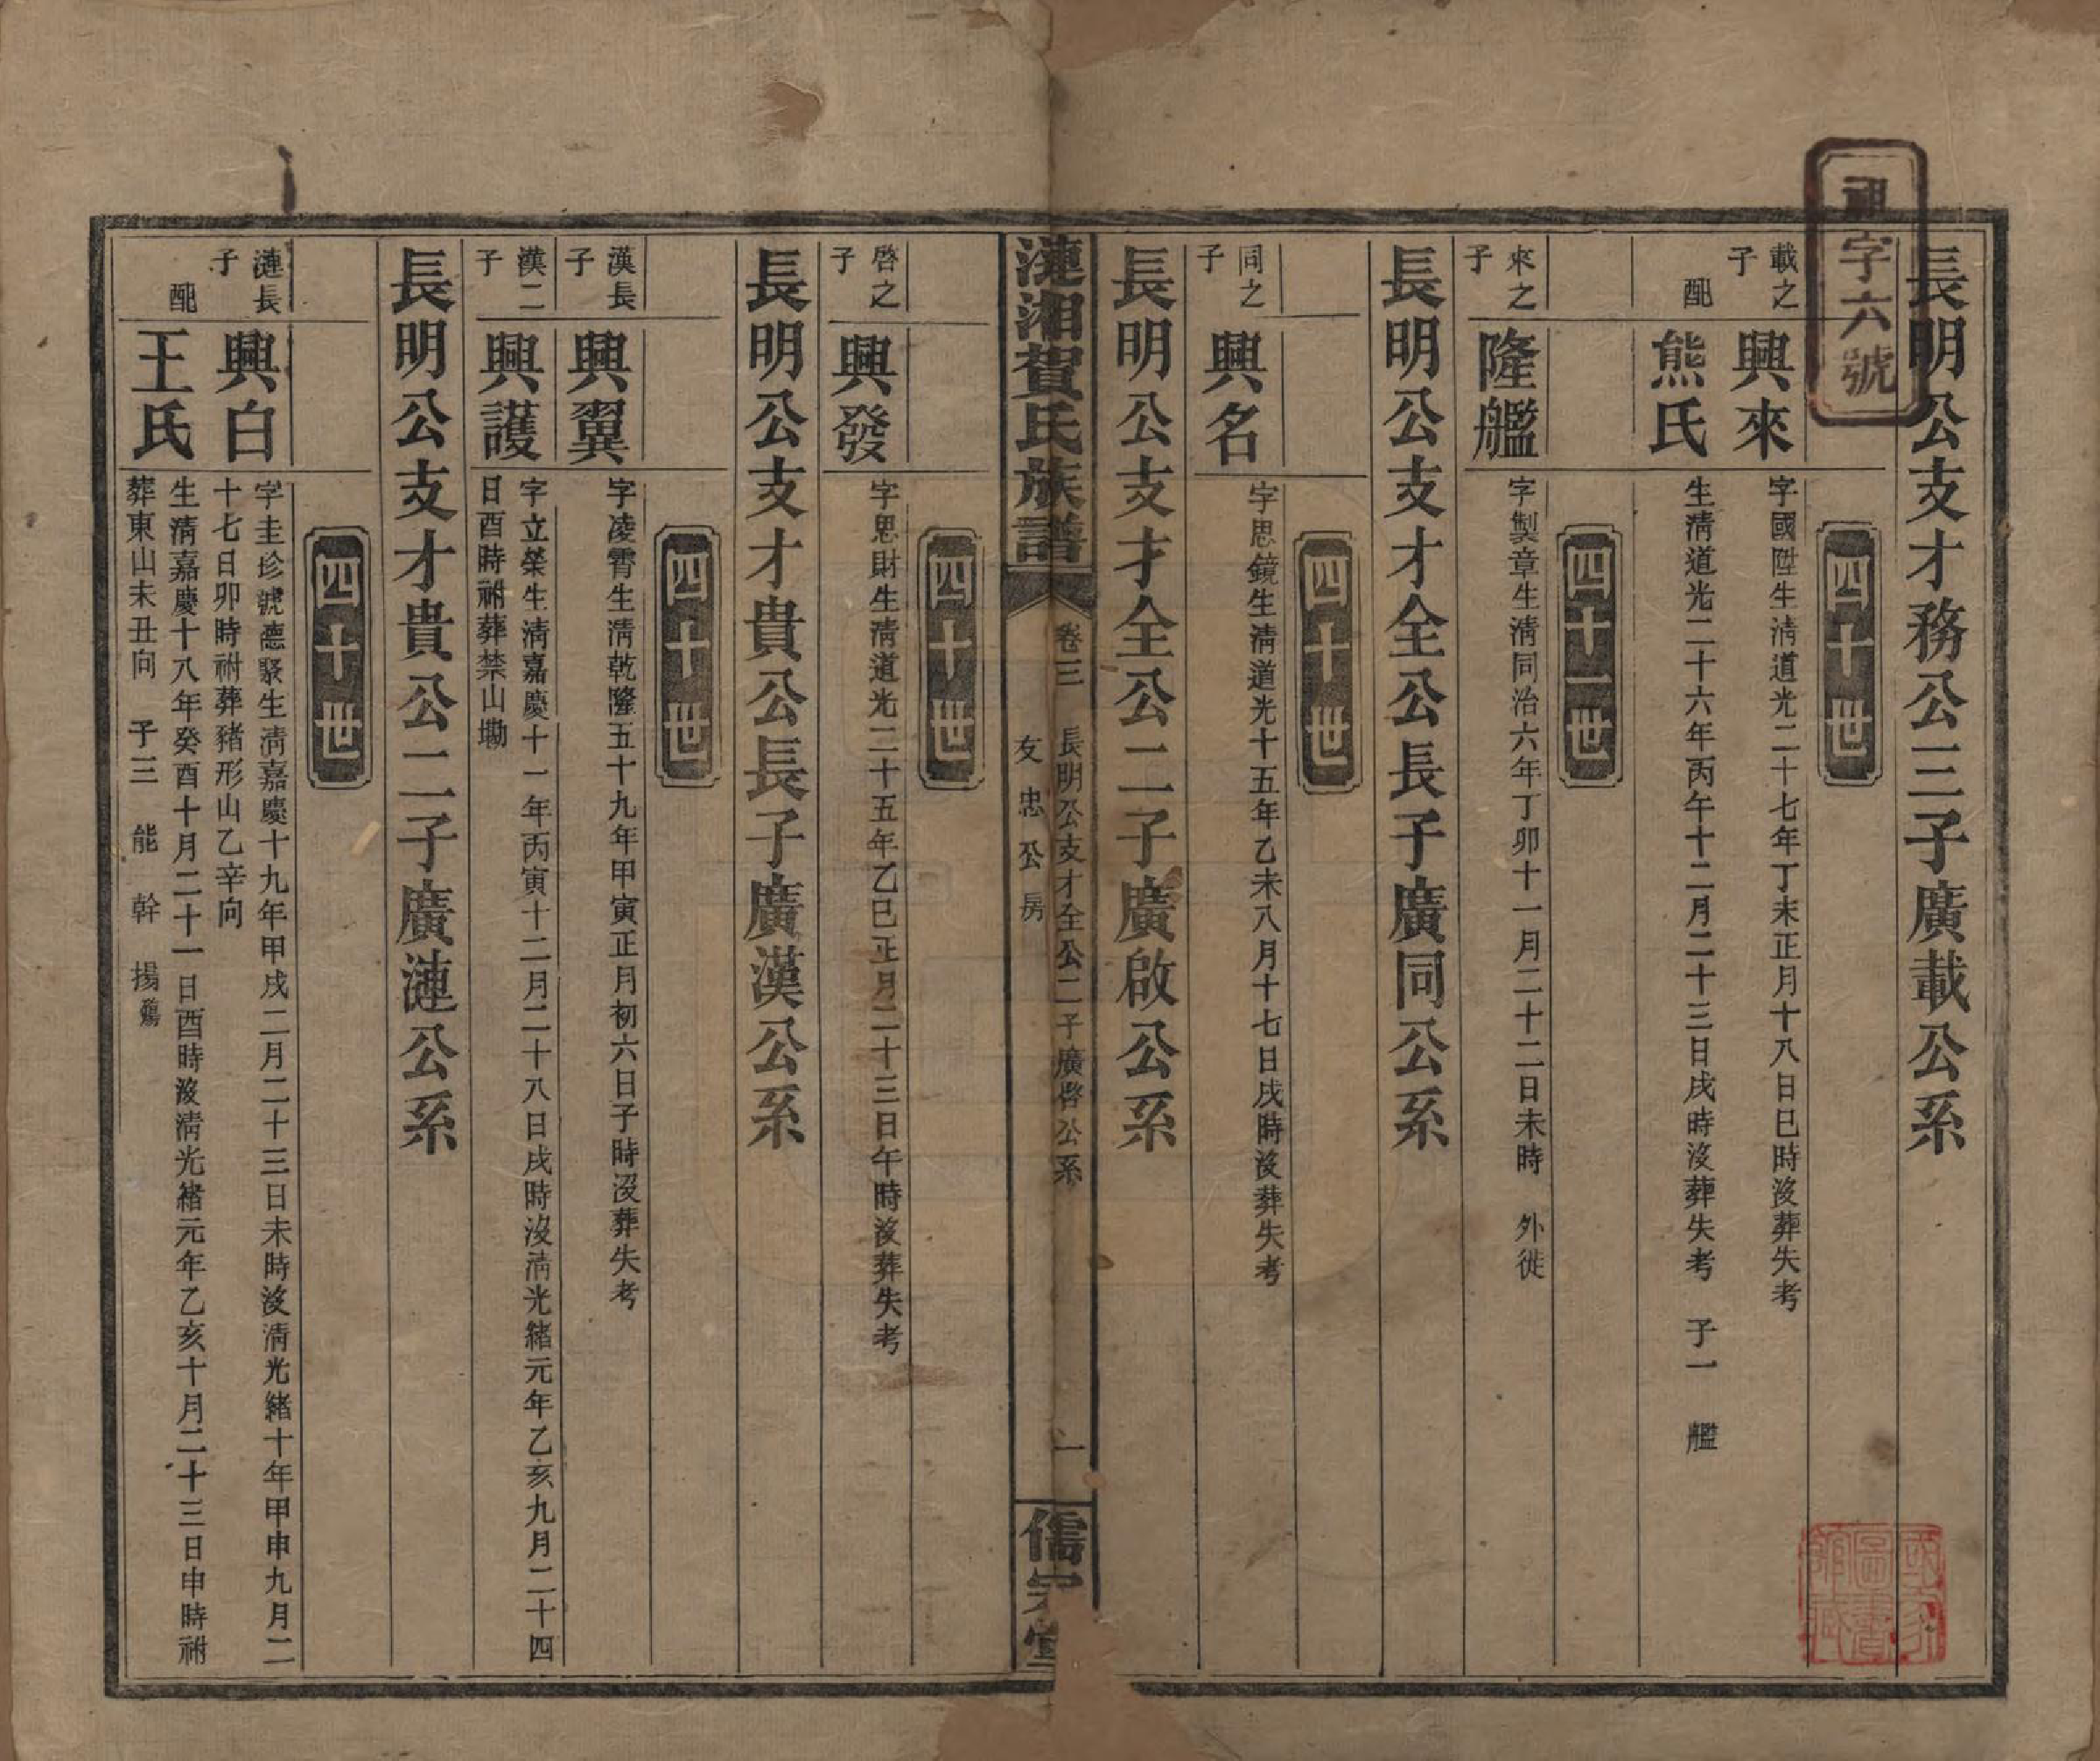 字六號
長明公支才務公三子廣載公系
四十世
載之子
興來
字國陞生淸道光二十七年丁未正月十八日巳時沒葬失考
配
熊氏
生淸道光二十六年丙午十二月二十三日戌時沒葬失考 子一 艦
四十一世
來之子
隆艦
字製章生淸同治六年丁卯十一月二十二日未時 外徙
長明公支才全公長子廣同公系
四十世
同之子
興名
字思鏡生淸道光十五年乙未八月十七日戌時沒葬失考
長明公支才全公二子廣啟公系
漣湘賀氏族譜
卷三 長明公支才全公二子廣啓公系
友忠公房
一
儒宗堂
四十世
啓之子
興發
字思財生淸道光二十五年乙巳正月二十三日午時沒葬失考
長明公支才貴公長子廣漢公系
四十世
漢長子
興翼
字凌霄生淸乾隆五十九年甲寅正月初六日子時沒葬失考
漢二子
興護
字立榮生淸嘉慶十一年丙寅十二月二十八日戌時沒淸光緒元年乙亥九月二十四
日酉時祔葬禁山坳
長明公支才貴公二子廣漣公系
四十世
漣長子
興白
字圭珍號德聚生淸嘉慶十九年甲戌二月二十三日未時沒淸光緒十年甲申九月二
十七日卯時祔葬豬形山乙辛向
配
王氏
生淸嘉慶十八年癸酉十月二十一日酉時沒淸光緒元年乙亥十月二十三日申時祔
葬東山未丑向 子三 能 幹 揚
國家圖書館藏